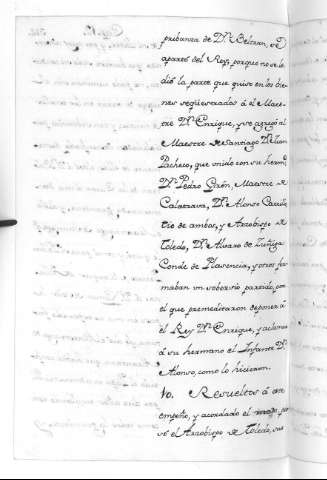 pribanza de Dn. Beltran, se
apartò del Rey, porque no se le
diò la parte que quiso en los bie-
nes seqüestrados á el Maes-
tre Dn. Enrique, y se agregó al
Maestre de Santiago Dn. Juan
Pacheco, que unido con su hermo.
Dn. Pedro Giròn, Maestre de
Calatrava, Dn. Alonso Carrillo
tio de ambos, y Arzobispo de
Toledo, Dn. Alvaro de Zuñiga
Conde de Plasencia, y otros for-
maban un sobervio partido, con
el que premeditaron deponer á
el Rey Dn. Enrique, y aclamar
á su hermano el Infante Dn.
Alonso, como lo hicieron.
10. Resueltos á este
empeño, y acordado el
el Arzobispo de Toledo, sus